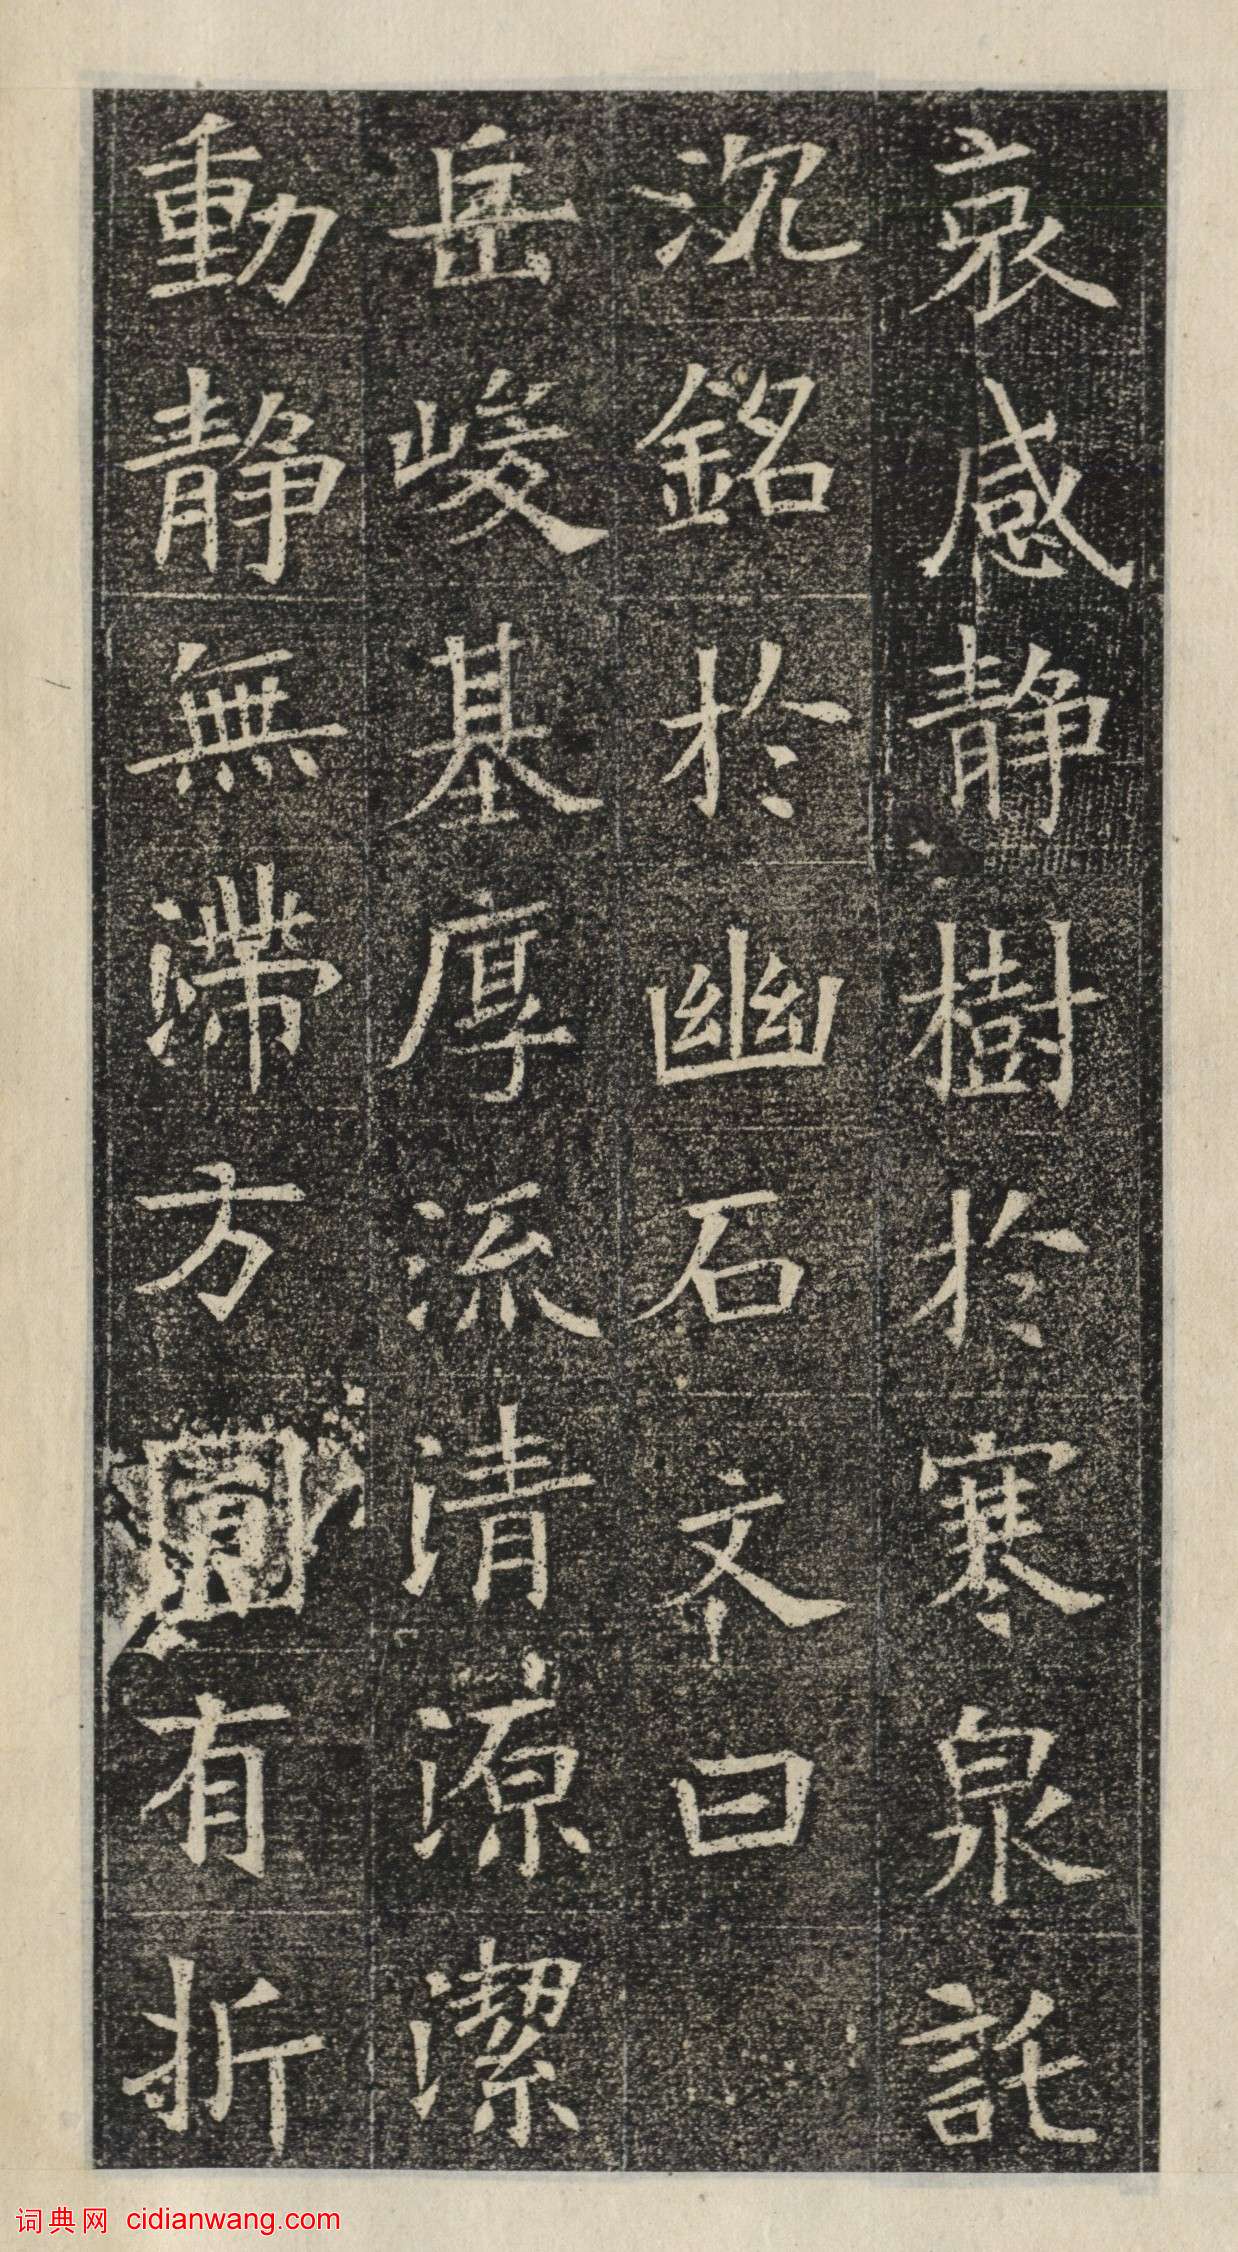 哀感静樹於寒泉託
沉銘於幽石文曰
岳峻基厚流清源潔
動静無滯方圓有折
词典网 cidianwang.com